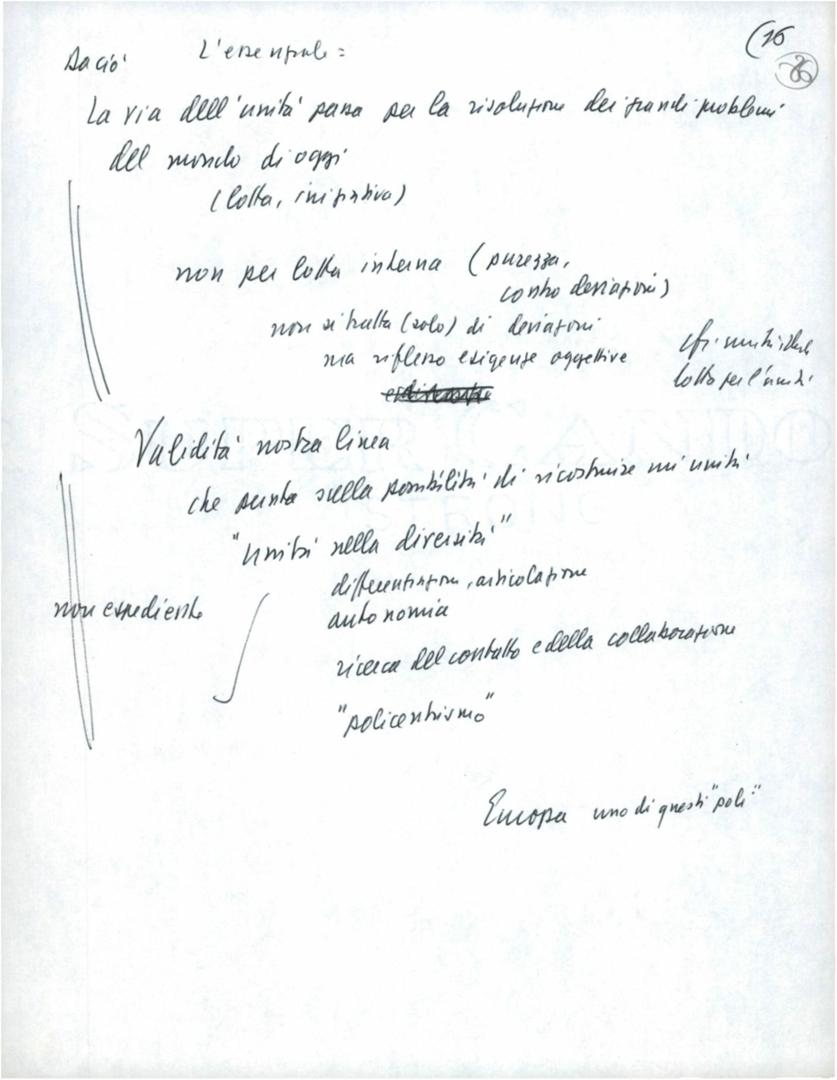 (26
26
Da ciò L'essenziale =
La via dell'unità passa per la risoluzione dei grandi problemi
del mondo di oggi
(lotta, iniziativa)
non per lotta interna (purezza,
contro deviazioni)
non si tratta (solo) di deviazioni
ma riflesso esigenze oggettive
lotta per l'unità
Validità nostra linea
che punta sulla possibilità di ricostruire un'unità
"unità nella diversità"
differenziazione, articolazione
non espediente
autonomia
ricerca del contatto e della collaborazione
"policentrismo"
Europa uno di questi "poli"